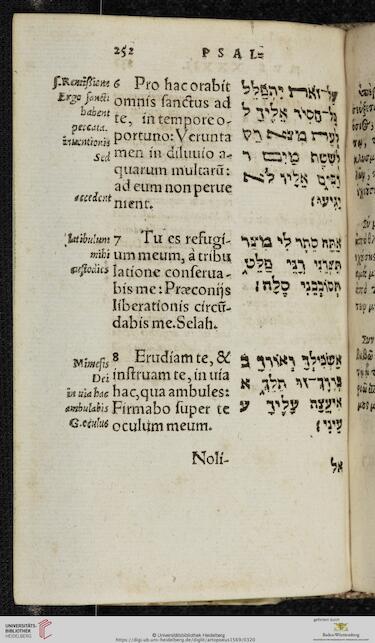 252 PSAL=
f. Remissione
Ergo sancti
habent
peccata.
Sed
accedent
6 Pro hac orabit
omnis sanctus ad
te, in tempore o-
portuno: Verunta
men in diluuio a-
quarum multarũ:
ad eum non perue
nient.
על־זאת יתפלל
כל־חסיד אליך ל
לעת מצא רק
לשטף מים ר
רבים אליו לא
יגיעו׃
latibulum
mihi
custodies
7 Tu es refugi-
um meum, à tribu
latione conserua-
bis me: Præconijs
liberationis circũ-
dabis me. Selah.
אתה סתר לי מצר
תצרני רני פלט
תסובבני סלה׃
Mimesis
Dei
in uia hac
ambulabis
G. oculus
8 Erudiam te, &
instruam te, in uia
hac, qua ambules:
Firmabo super te
oculum meum.
אשכילך ואורך ב
בדרך־זו תלך א
איעצה עליך ע
עיני׃
Noli-
אל
UNIVERSITÄTS-
BIBLIOTHEK
HEIDELBERG
© Universitätsbibliothek Heidelberg
https://digi.ub.uni-heidelberg.de/diglit/artopoeus1569/0320
gefördert durch
Baden-Württemberg